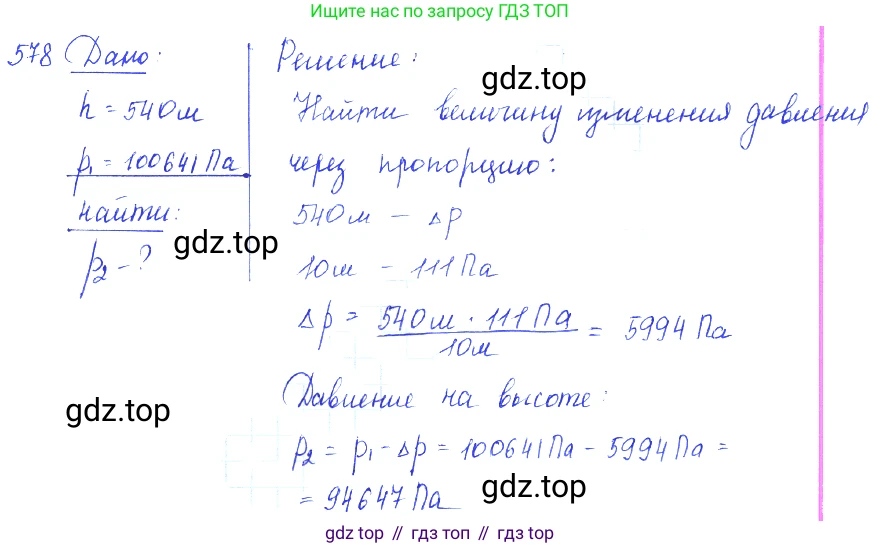 Ищите нас по запросу ГДЗ ТОП
578 Дано:
h = 540м
p₁ = 100641 Па
найти:
p₂ - ?
Решение:
Найти величину изменения давления
через пропорцию:
540м - Δp
10м - 111 Па
Δp = 540м · 111 Па / 10м = 5994 Па
Давление на высоте:
p₂ = p₁ - Δp = 100641 Па - 5994 Па =
= 94647 Па
gdz.top
gdz.top
gdz.top
gdz.top
gdz top // гдз топ // gdz top // гдз топ